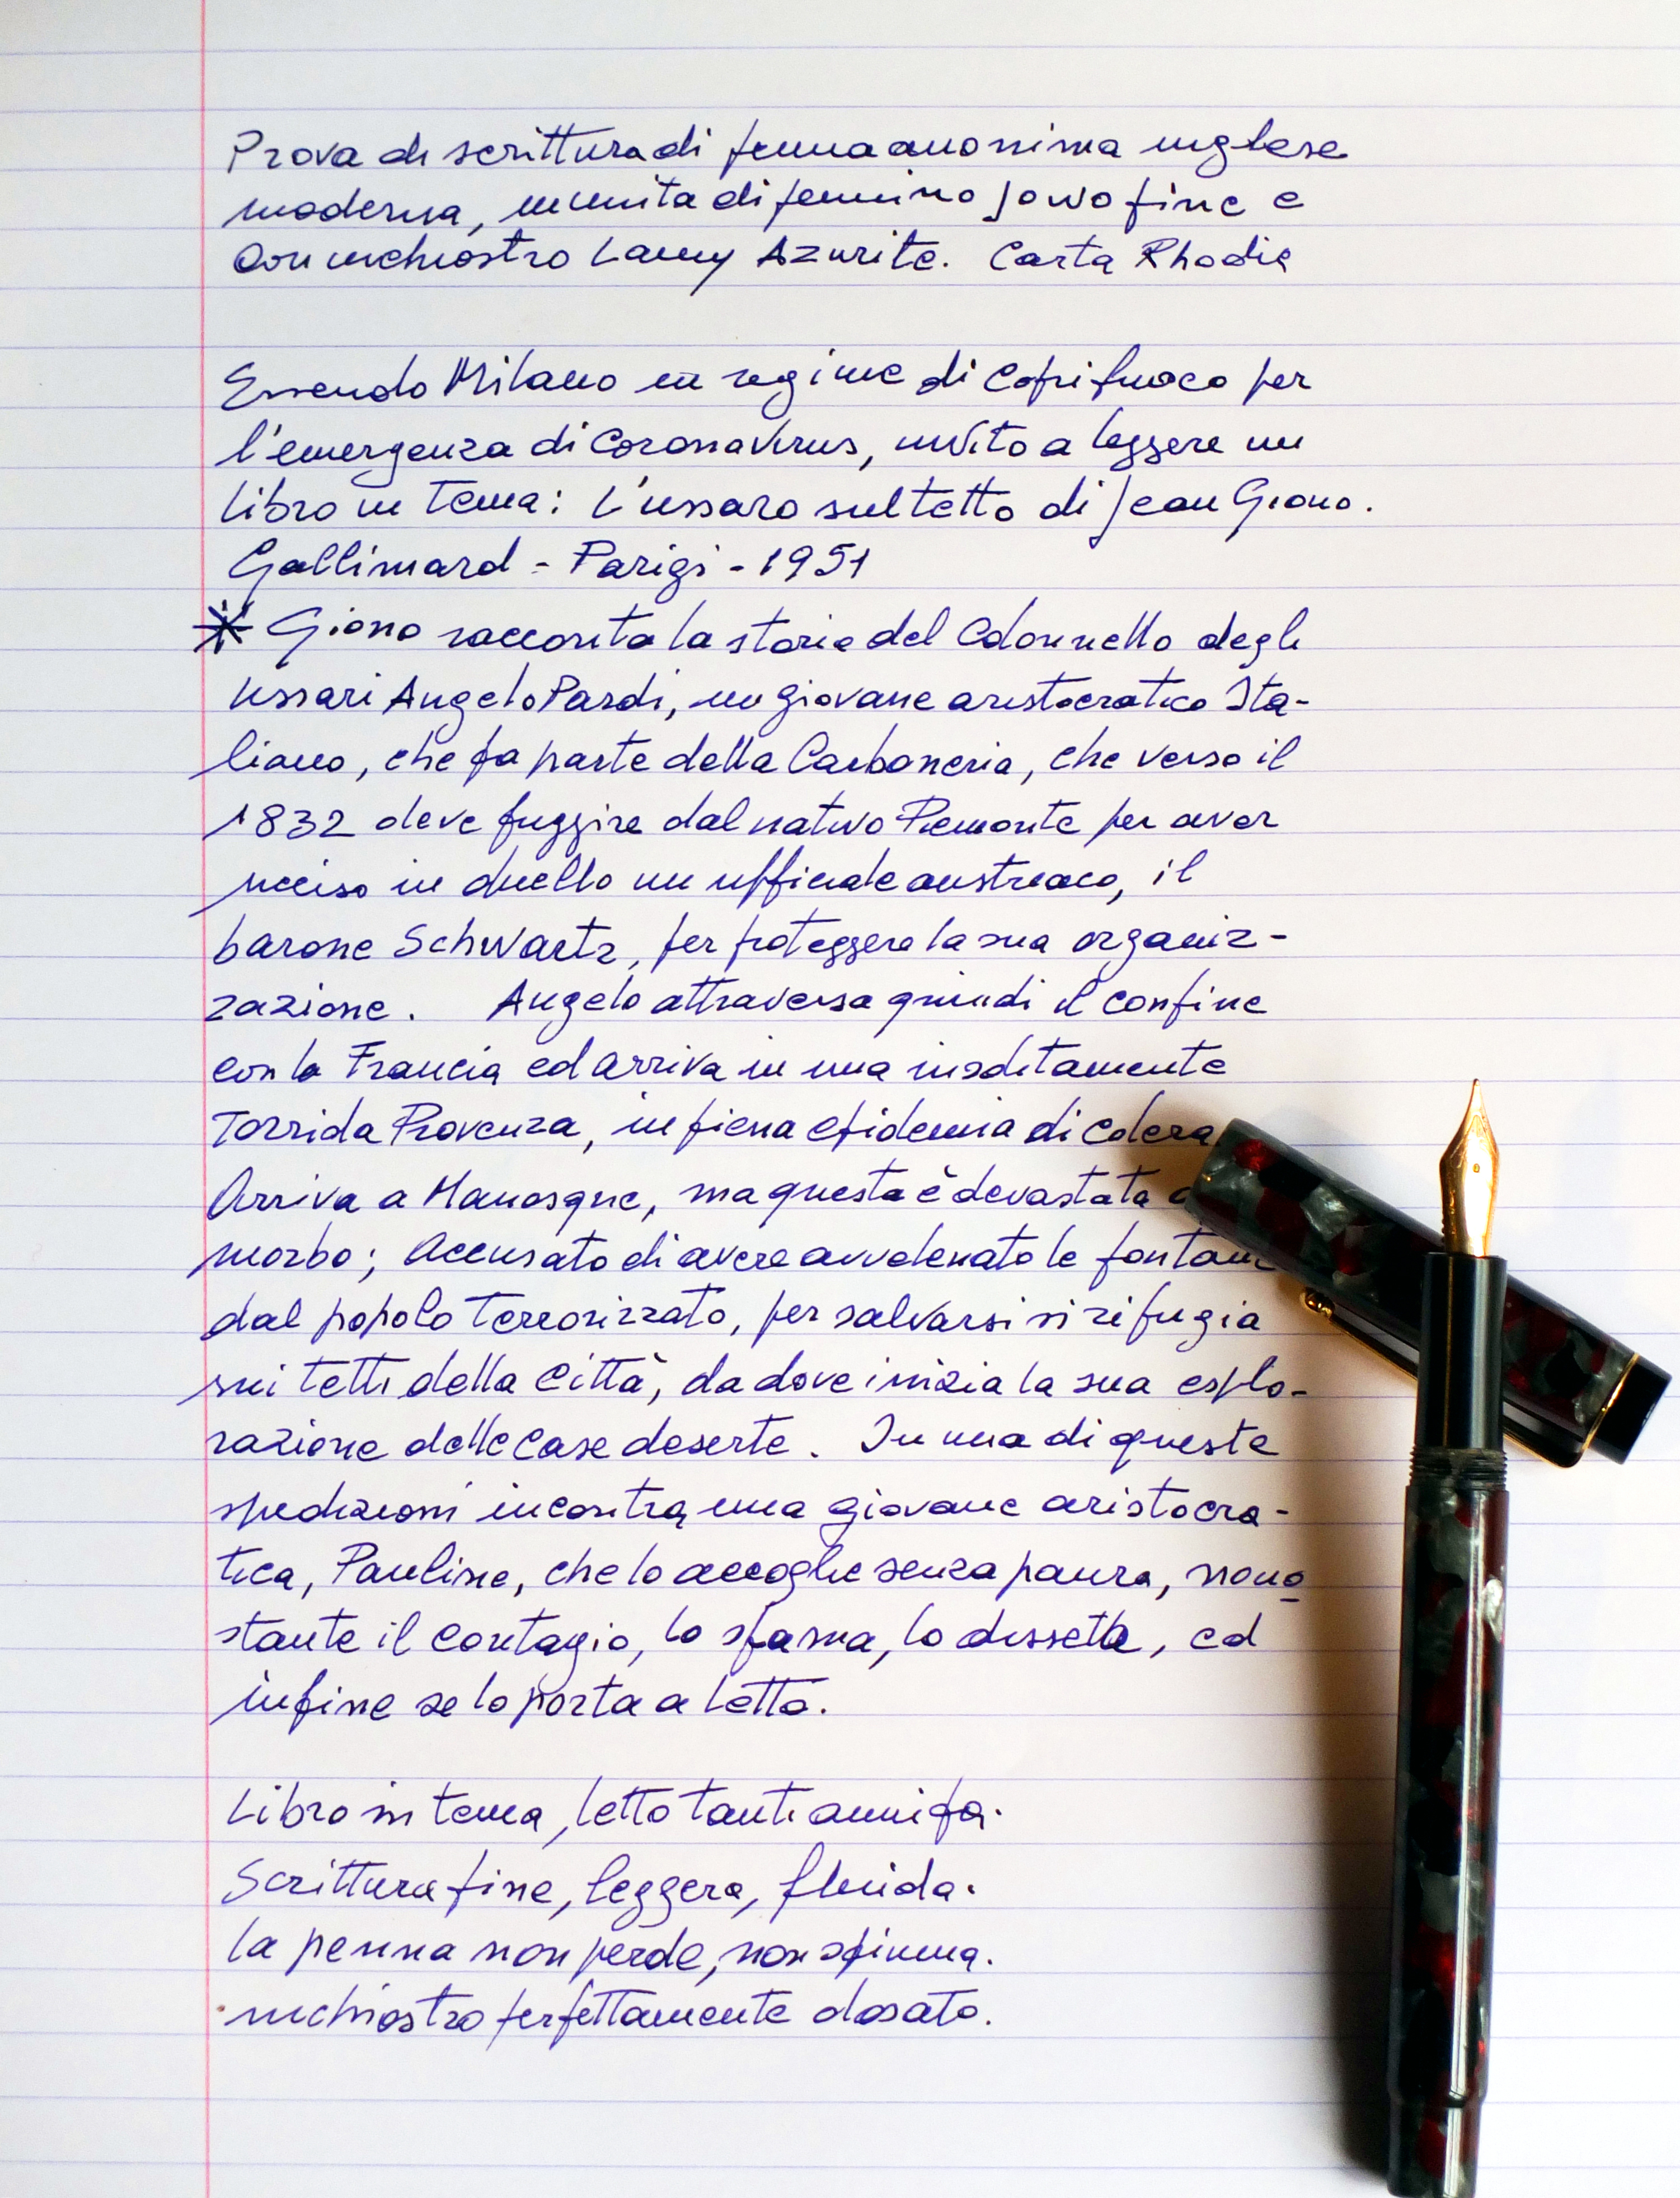 Prova di scrittura di penna anonima inglese
moderna, munita di pennino Jowo fine e
con inchiostro Lamy Azurite. Carta Rhodia
Essendo Milano in regime di coprifuoco per
l'emergenza di Coronavirus, invito a leggere un
libro in tema: L'ussaro sul tetto di Jean Giono.
Gallimard - Parigi - 1951
* Giono racconta la storia del Colonnello degli
Ussari Angelo Pardi, un giovane aristocratico Ita-
liano, che fa parte della Carboneria, che verso il
1832 deve fuggire dal nativo Piemonte per aver
ucciso in duello un ufficiale austriaco, il
barone Schwartz, per proteggere la sua organiz-
zazione. Angelo attraversa quindi il confine
con la Francia ed arriva in una insolitamente
Torrida Provenza, in piena epidemia di colera
Arriva a Manosque, ma questa è devastata
morbo; Accusato di avere avvelenato le fontane
dal popolo terrorizzato, per salvarsi si rifugia
sui tetti della città, da dove inizia la sua esplo-
razione delle case deserte. In una di queste
spedizioni incontra una giovane aristocra-
tica, Pauline, che lo accoglie senza paura, nono
stante il contagio, lo sfama, lo disseta, ed
infine se lo porta a letto.
Libro in tema, letto tanti anni fa.
Scrittura fine, leggera, fluida.
La penna non perde, non spiuma.
inchiostro perfettamente dosato.